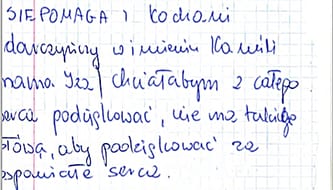 SIEPOMAGA i Kochani
darczyńcy w imieniu Kamili
mama Iza chciałabym z całego
serca podziękować, nie ma takiego
słowa, aby podziękować za
wspaniałe serca.